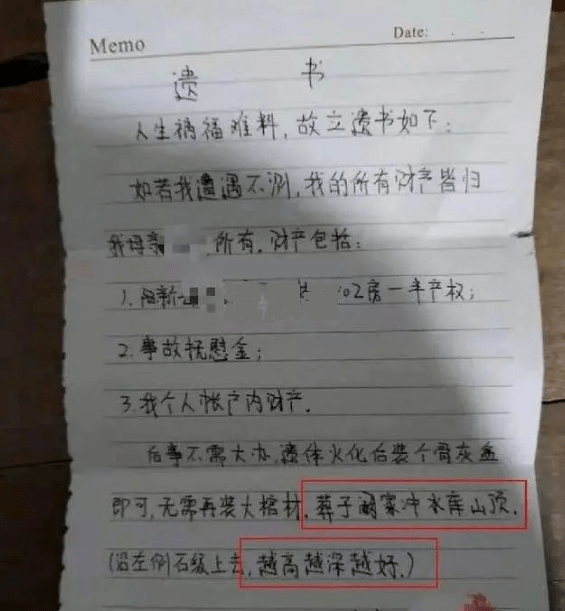 Memo
Date:
遗 书
人生祸福难料,故立遗书如下:
如若我遭遇不测,我的所有财产皆归
我母亲 所有,财产包括:
1. 阳新 02房一半产权;
2. 事故抚慰金;
3. 我个人帐户内财产.
后事不需大办,遗体火化后装个骨灰盒
即可,无需再装大棺材,葬于阚家冲水库山顶.
(沿左侧石级上去,越高越深越好.)